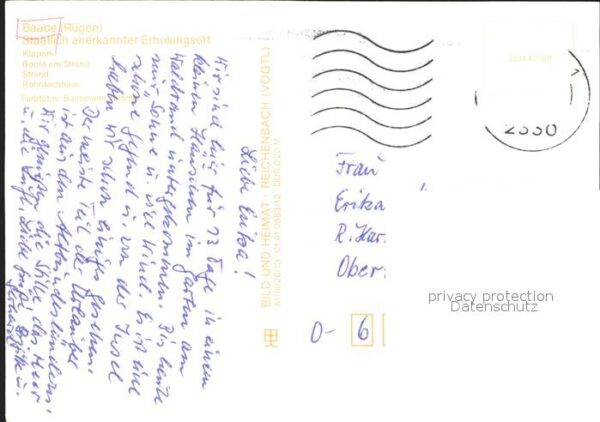 Baabe (Rügen)
Staatlich anerkannter Erholungsort
Kurpark
Boote am Strand
Strand
Rohrdachhaus
Liebe Erika!
Wir sind hier für 13 Tage in einem
kleinen Häuschen im Garten am
Waldrand untergekommen. Bis heute
nur Sonne u. viel Wind. Es ist eine
schöne Gegend u. von der Insel
haben wir schon einiges gesehen.
Der meiste Teil der Urlauber
ist aus den Altbundesländern.
Wir genießen die Stille, das Meer
u. die Luft. Liebe Grüße
BILD UND HEIMAT REICHENBACH (VOGTL)
2330
Frau
Erika
R.
Ober
O- 6
privacy protection
Datenschutz